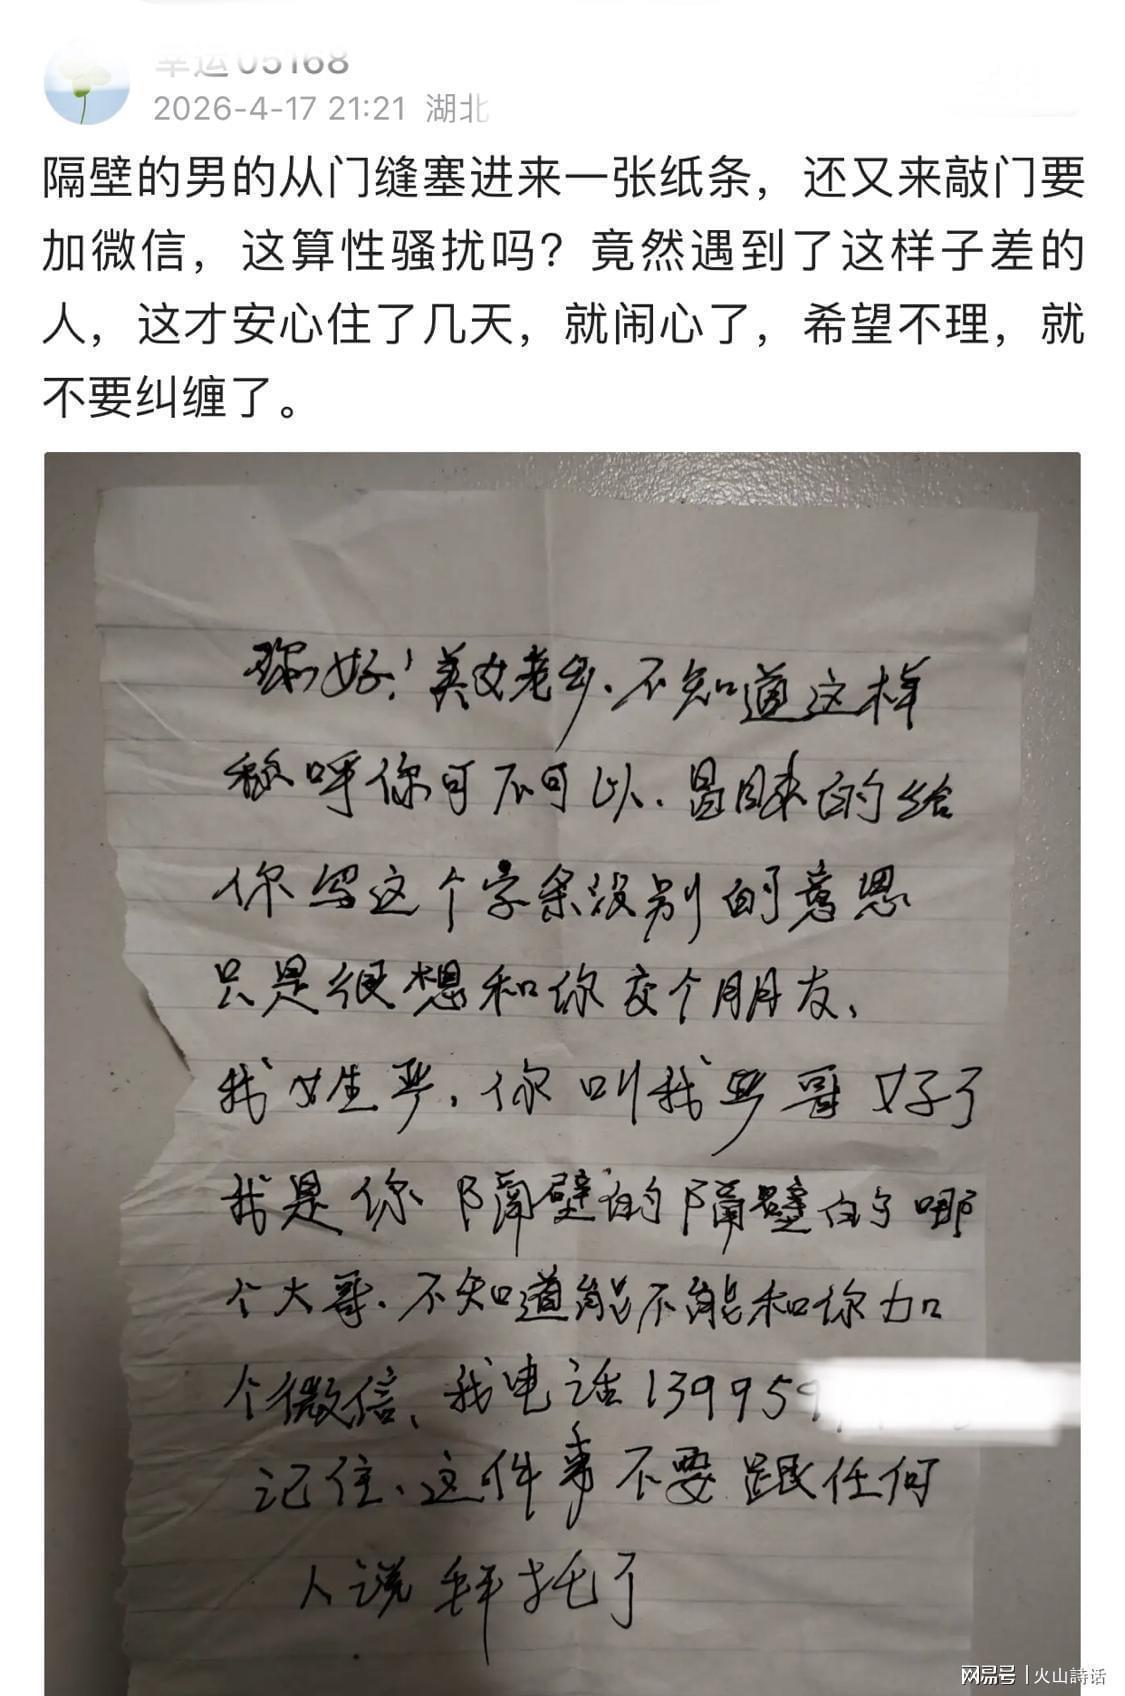 幸运05168
2026-4-17 21:21 湖北
隔壁的男的从门缝塞进来一张纸条，还又来敲门要
加微信，这算性骚扰吗？竟然遇到了这样子差的
人，这才安心住了几天，就闹心了，希望不理，就
不要纠缠了。
你好！美女老乡.不知道这样
称呼你可不可以.冒昧的给
你写这个字条没别的意思
只是很想和你交个朋友、
我姓严，你叫我严哥好了
我是你隔壁的隔壁的哪
个大哥.不知道能不能和你加
个微信、我电话139959
记住、这件事不要跟任何
人说拜托了
网易号 | 火山詩话